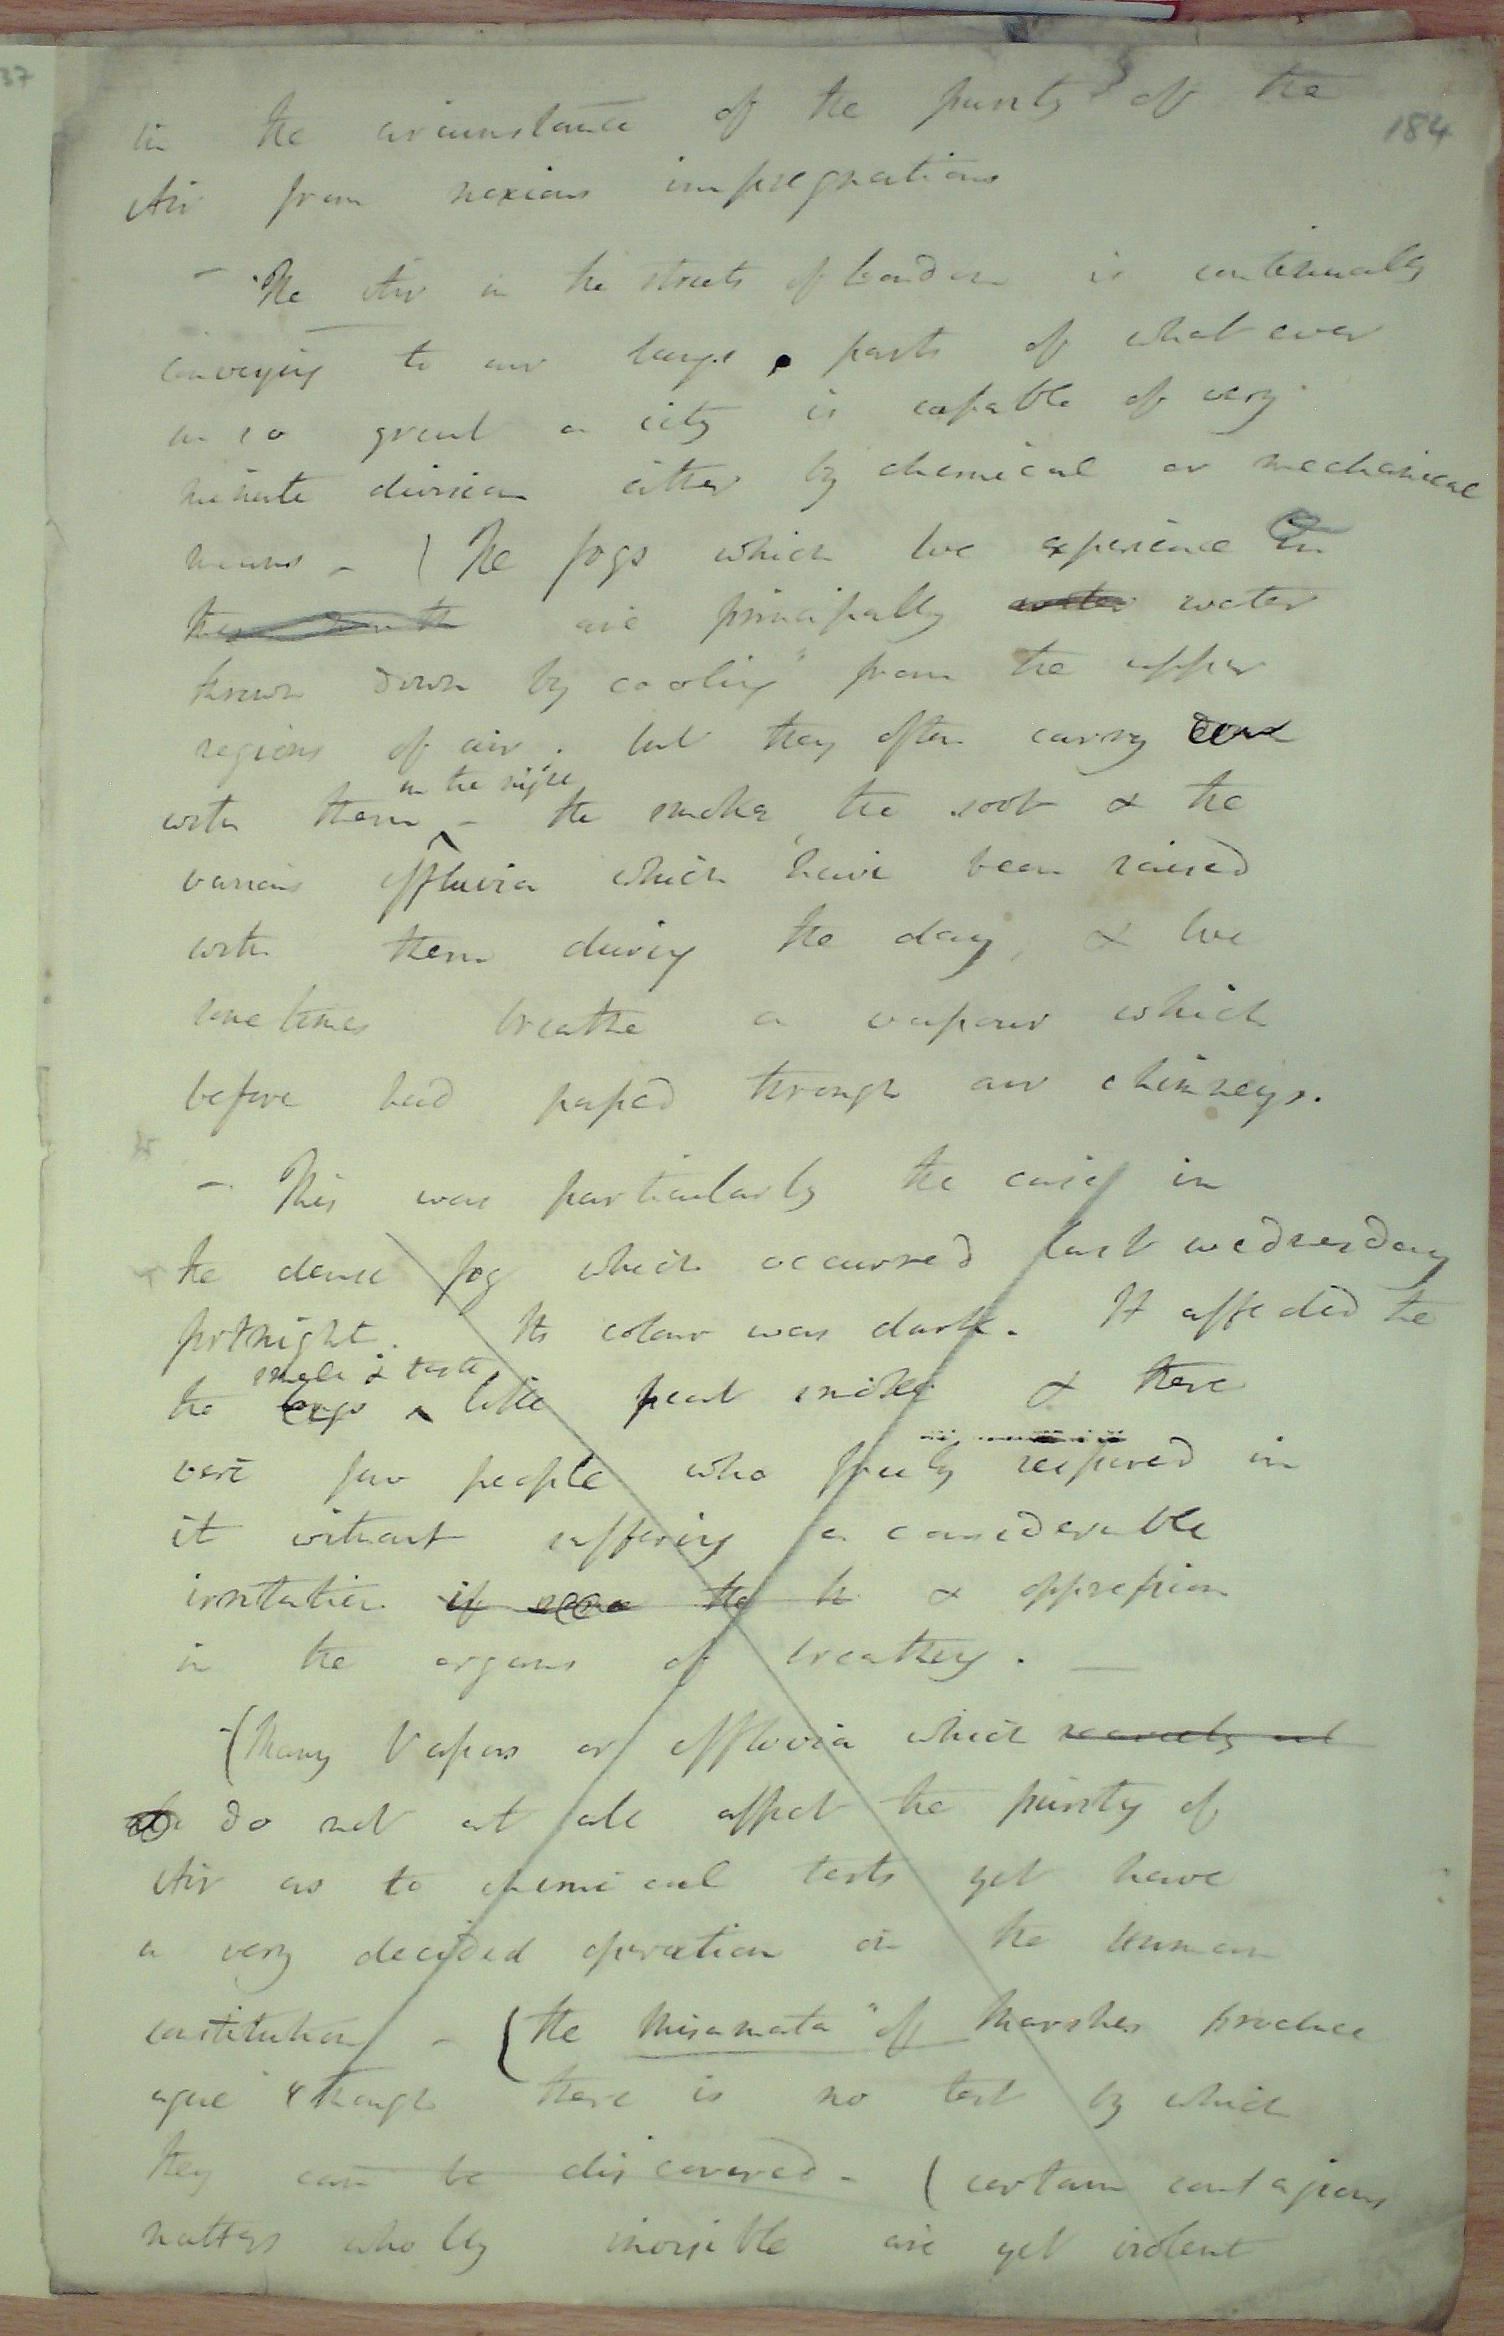 37
184
in the circumstance of the purity of the
Air from noxious impregnations
- The Air in the streets of London is continually
conveying to our lungs parts of what ever
in so great a city is capable of very
minute division either by chemical or mechanical
means - ( The fogs which we experience in
are principally water water
thrown down by cooling from the upper
regions of air; but they often carry down
in the night
with them - the smoke, the soot & the
various effluvia which have been raised
with them during the day, & we
sometimes breathe a vapour which
before had passed through our chimneys.
- This was particularly the case in
the dense fog which occurred last wednesday
fortnight. Its colour was dark. It affected the
smell & taste
the lungs like peat smoke & there
were few people who freely respired in
it without suffering a considerable
irritation if the h & oppression
in the organs of breathing. —
- ( Many Vapors or effluvia which scarcely at
do not at all affect the purity of
Air as to chemical tests yet have
a very decided operation on the human
constitution - ( the Misamata" of Marshes produce
ague & though there is no test by which
they can be discovered - ( certain contagious
matters wholly invisible are yet violent